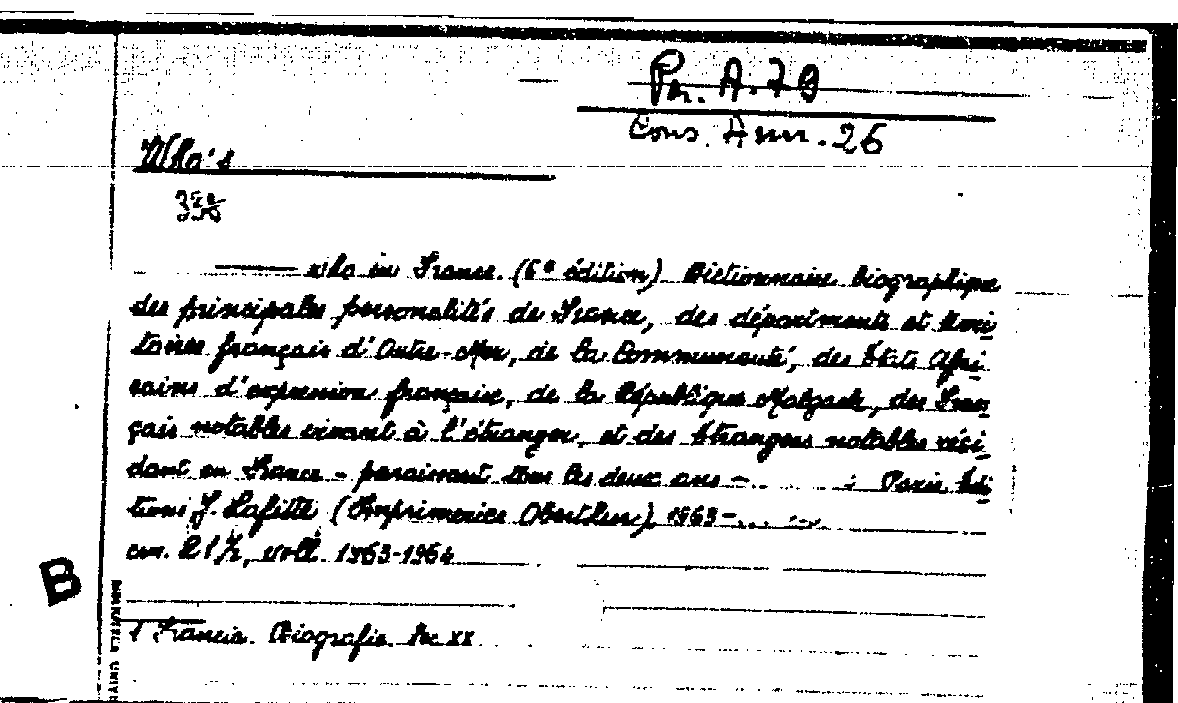 Per. A. 70
Cons. Ann. 26
Who's
——— who in France. (6e édition) Dictionnaire biographique
des principales personalités de France, des départments et terri
toires français d'Outre-Mer, de la Communauté, des États Afri
cains d'expression française, de la République Malgache, des Fran
çais notables vivant à l'étranger, et des étrangers notables rési
dant en France - paraissant tous les deux ans - ... : Paris Édi
tions J. Lafitte (Imprimerie Oberthur) 1963-.....
cm. 21½, voll. 1963-1964
B
1 Francia. Biografie. Sec XX